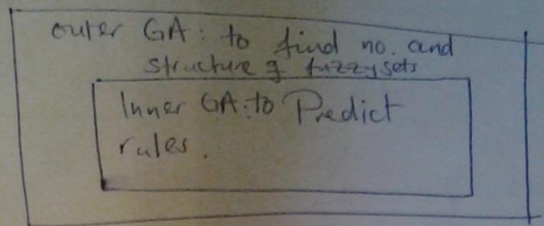 outer GA: to find no. and
structure of fuzzy sets
Inner GA: to Predict
rules.